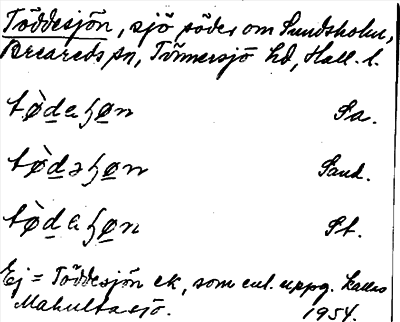 Töddesjön, sjö söder om Sundsholm,
Breareds sn, Tönnersjö hd, Hall. l.
tø̀dɐɧøn Sa.
tø̀dəɧøn Sand.
tø̀dɐɧøn St.
Ej = Töddesjön ek, som enl. uppg. kallas
Mahultasjö. 1954.